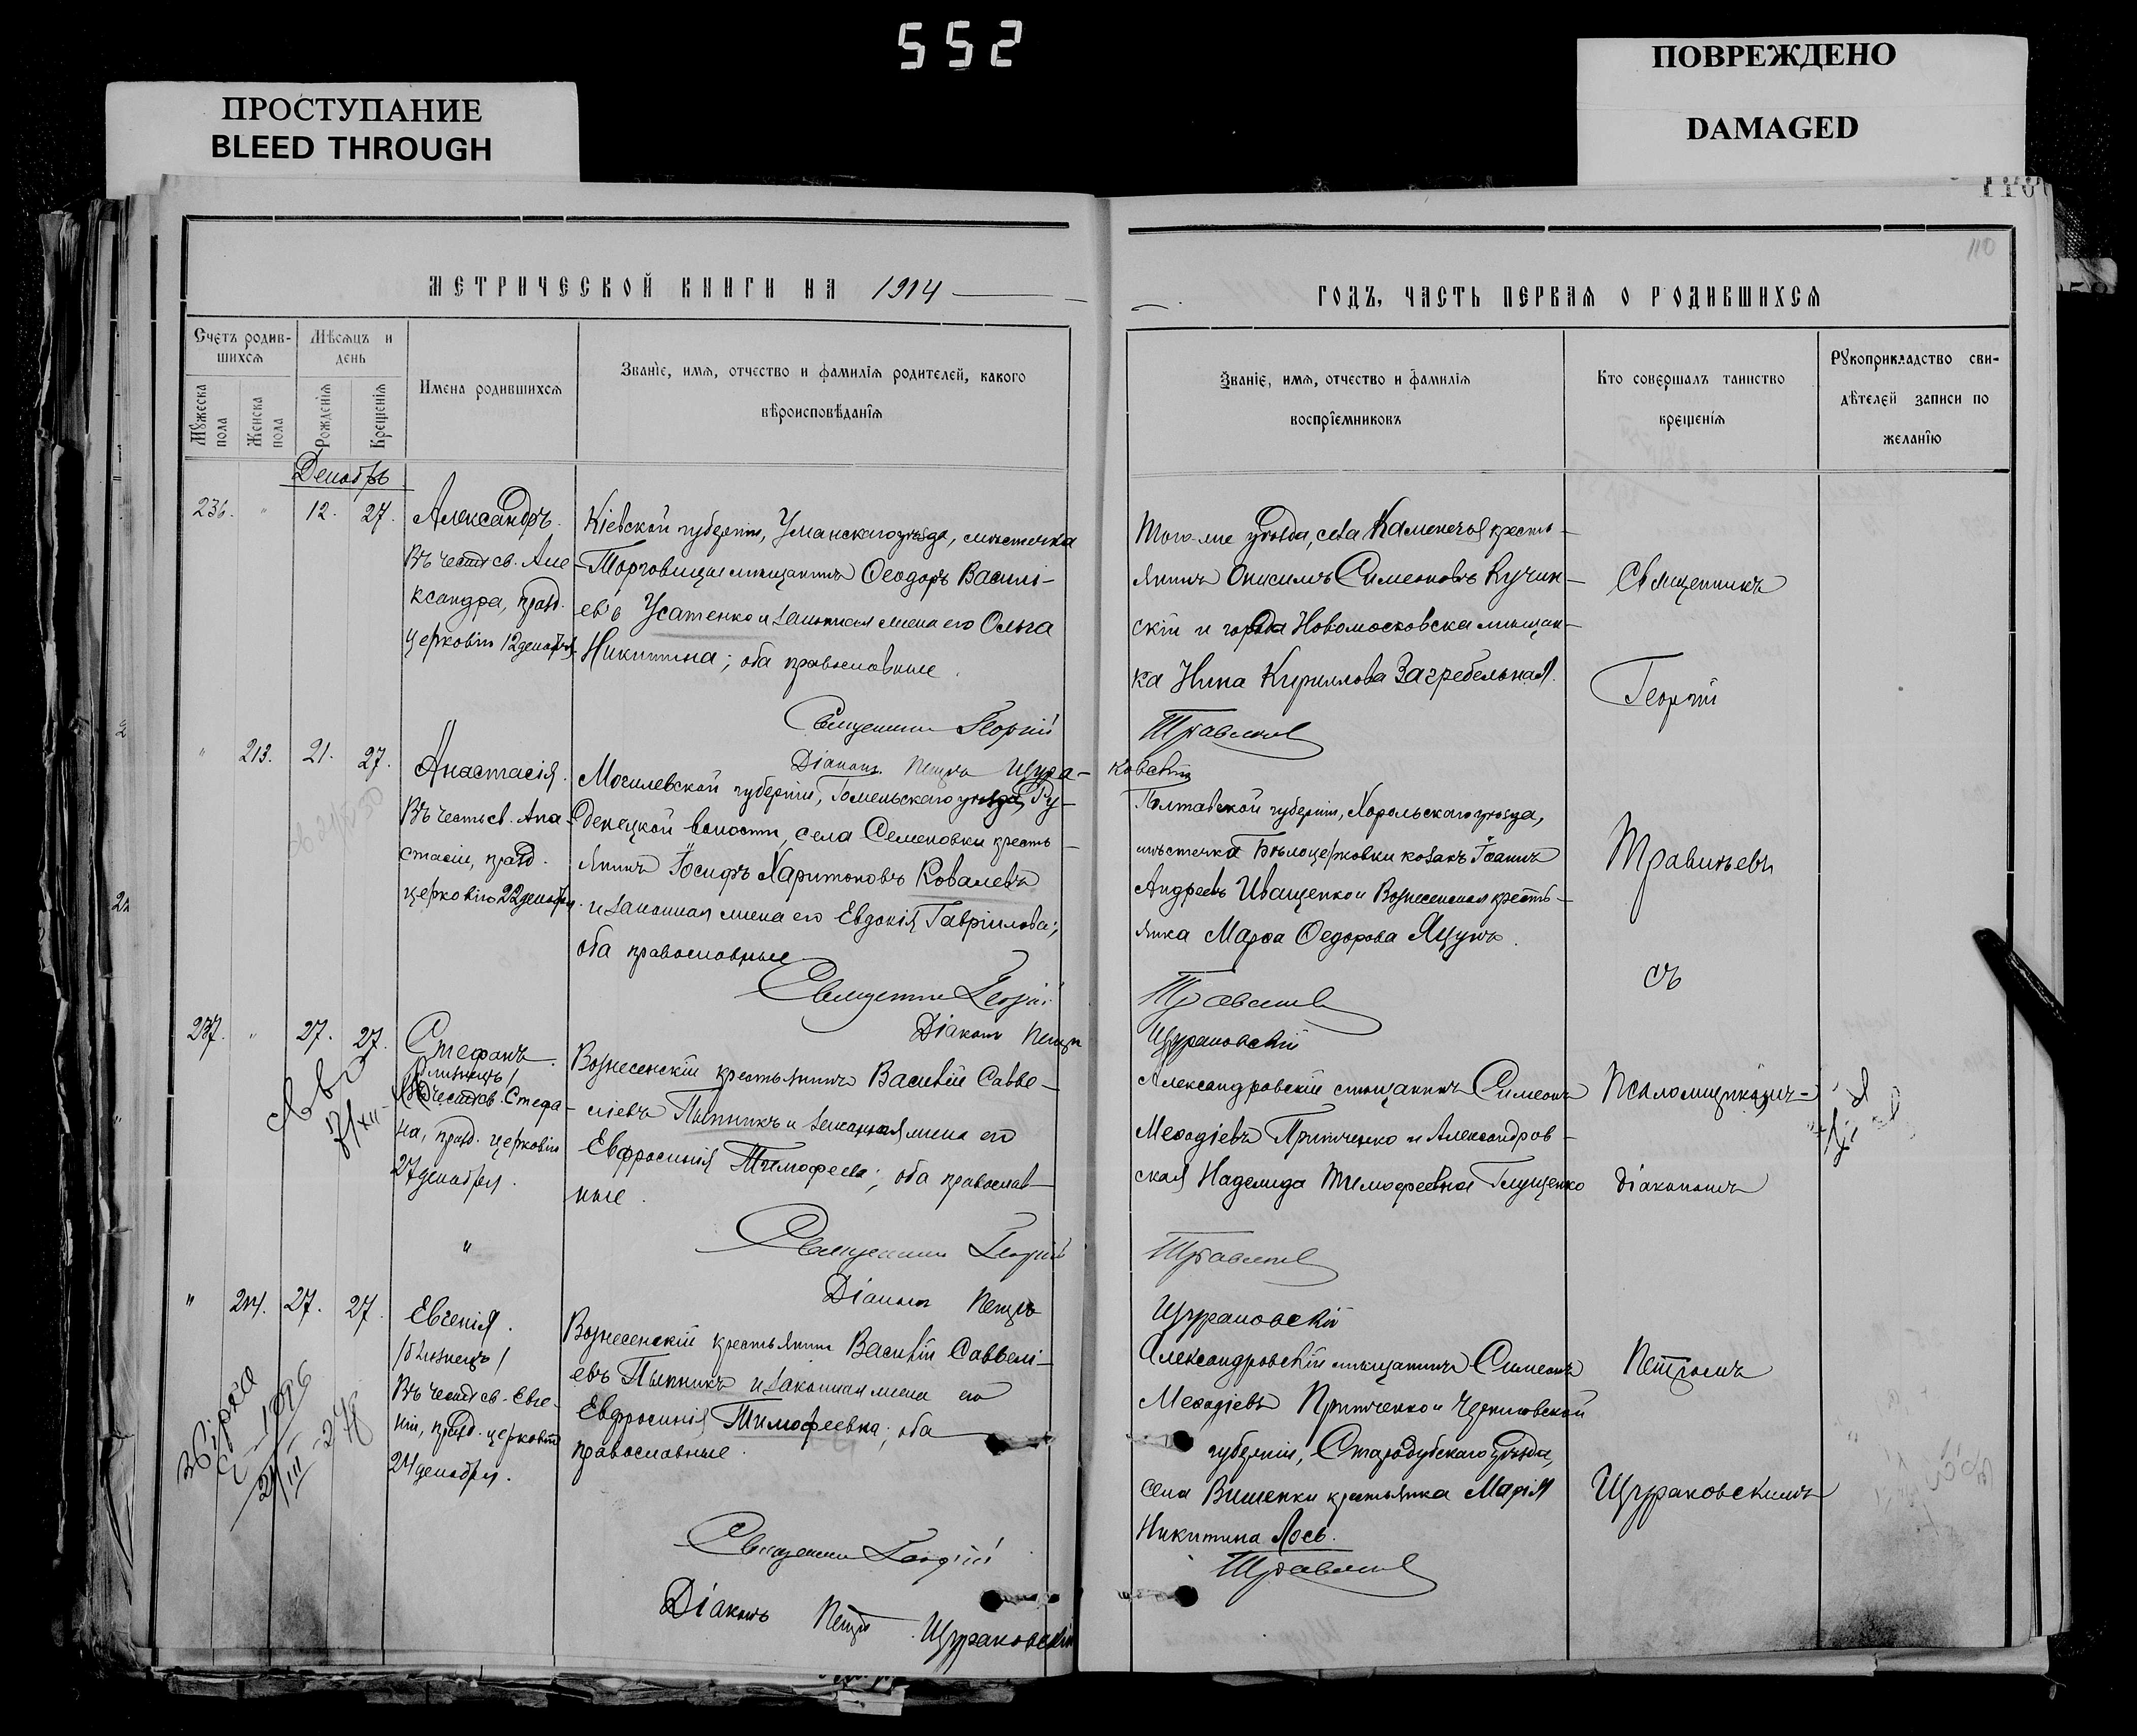 552
ПРОСТУПАНИЕ
BLEED THROUGH
ПОВРЕЖДЕНО
DAMAGED
110
МЕТРИЧЕСКОЙ КНИГИ НА 1914
Счетъ родив-
шихся
Мѣсяцъ и
день
Мужеска
пола
Женска
пола
Рожденія
Крещенія
Имена родившихся
Званіе, имя, отчество и фамилія родителей, какого
вѣроисповѣданія
Декабрь
236. " 12. 27. Александръ.
Въ честь св. Але-
ксандра, празд.
церковію 12 декабря
Кіевской губерніи, Уманскаго уѣзда, мѣстечка
Торговицы мѣщанинъ Ѳеодоръ Василі-
евъ Усатенко и законная жена его Ольга
Никитина; оба православные.
Священникъ Георгій
Діаконъ Петръ Щура-
" 213. 21. 27. Анастасія.
Въ честь св. Ана-
стасіи, празд.
церковію 22 декабря.
Могилевской губерніи, Гомельскаго уѣзда, Ру-
денецкой волости, села Семеновки кресть-
янинъ Іосифъ Харитоновъ Ковалевъ
и законная жена его Евдокія Гавріилова;
оба православные
Священникъ Георгій
Діаконъ Петръ
237. " 27. 27. Стефанъ.
/близнецъ/
Въ честь св. Стефа-
на, празд. церковію
27 декабря.
Вознесенскій крестьянинъ Василій Савве-
ліевъ Пыпникъ и законная жена его
Евфросинія Тимофеева; оба православ-
ные.
Священникъ Георгій
Діаконъ Петръ
" 214. 27. 27. Евгенія.
/близнецъ/
Въ честь св. Евге-
ніи, празд. церковію
24 декабря.
Вознесенскій крестьянинъ Василій Саввелі-
евъ Пыпникъ и законная жена его
Евфросинія Тимофеевна; оба
православные.
Священникъ Георгій
Діаконъ Петръ Щураковскій
ГОДЪ, ЧАСТЬ ПЕРВАЯ О РОДИВШИХСЯ
110
Званіе, имя, отчество и фамилія
воспріемниковъ
Кто совершалъ таинство
крещенія
Рукоприкладство сви-
дѣтелей записи по
желанію
Того-же уѣзда, села Каменечья кресть-
янинъ Онисимъ Симеоновъ Кучин-
скій и города Новомосковска мѣщан-
ка Нина Кириллова Загребельная.
Травинѣевъ
ковскій
Полтавской губерніи, Хорольскаго уѣзда,
мѣстечка Бѣлоцерковки козакъ Іоаннъ
Андреевъ Иващенко и Вознесенская кресть-
янка Марѳа Ѳедорова Яцунъ.
Травинѣевъ
Щураковскій
Александровскій мѣщанинъ Симеонъ
Меѳодіевъ Притченко и Александров-
ская Надежда Тимофеевна Глущенко
Травинѣевъ
Щураковскій
Александровскій мѣщанинъ Симеонъ
Меѳодіевъ Притченко и Черниговской
губерніи, Стародубскаго уѣзда,
села Вишенки крестьянка Марія
Никитина Лось.
Травинѣевъ
Священникъ
Георгій
Травинѣевъ
съ
діакономъ
Петромъ
Щураковскимъ